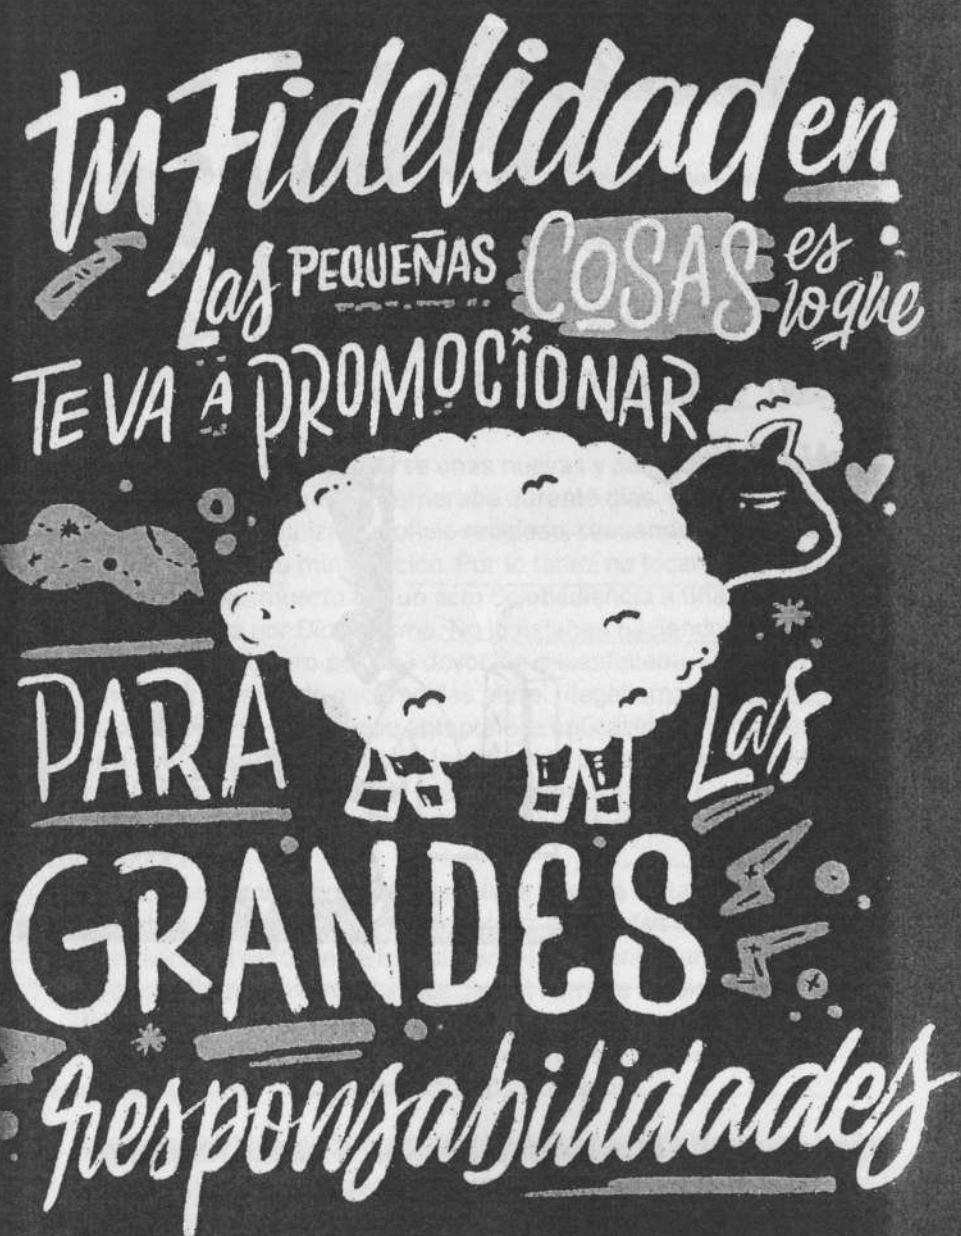 tu Fidelidad en
Las PEQUEÑAS COSAS es
lo que
TE VA A PROMOCIONAR
PARA Las
GRANDES
responsabilidades